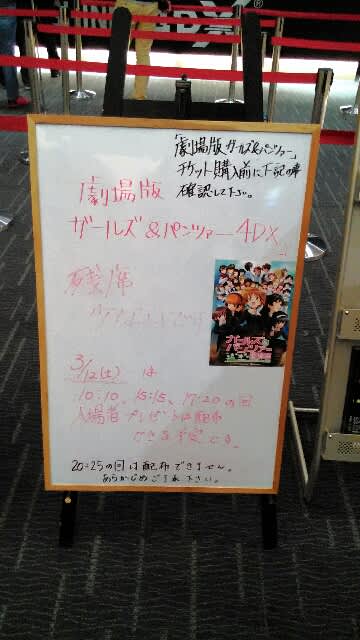 「劇場版 ガールズ&パンツァー」
チケット購入前に下記の事
確認して下さい。
劇場版
ガールズ&パンツァー 4DX
残席
3/12(土) は
10:10、15:15、17:20 の回
入場者プレゼントは配布
できる予定です。
20:25の回は配布できません。
あらかじめご了承下さい。
ガールズ&
パンツァー
劇場版